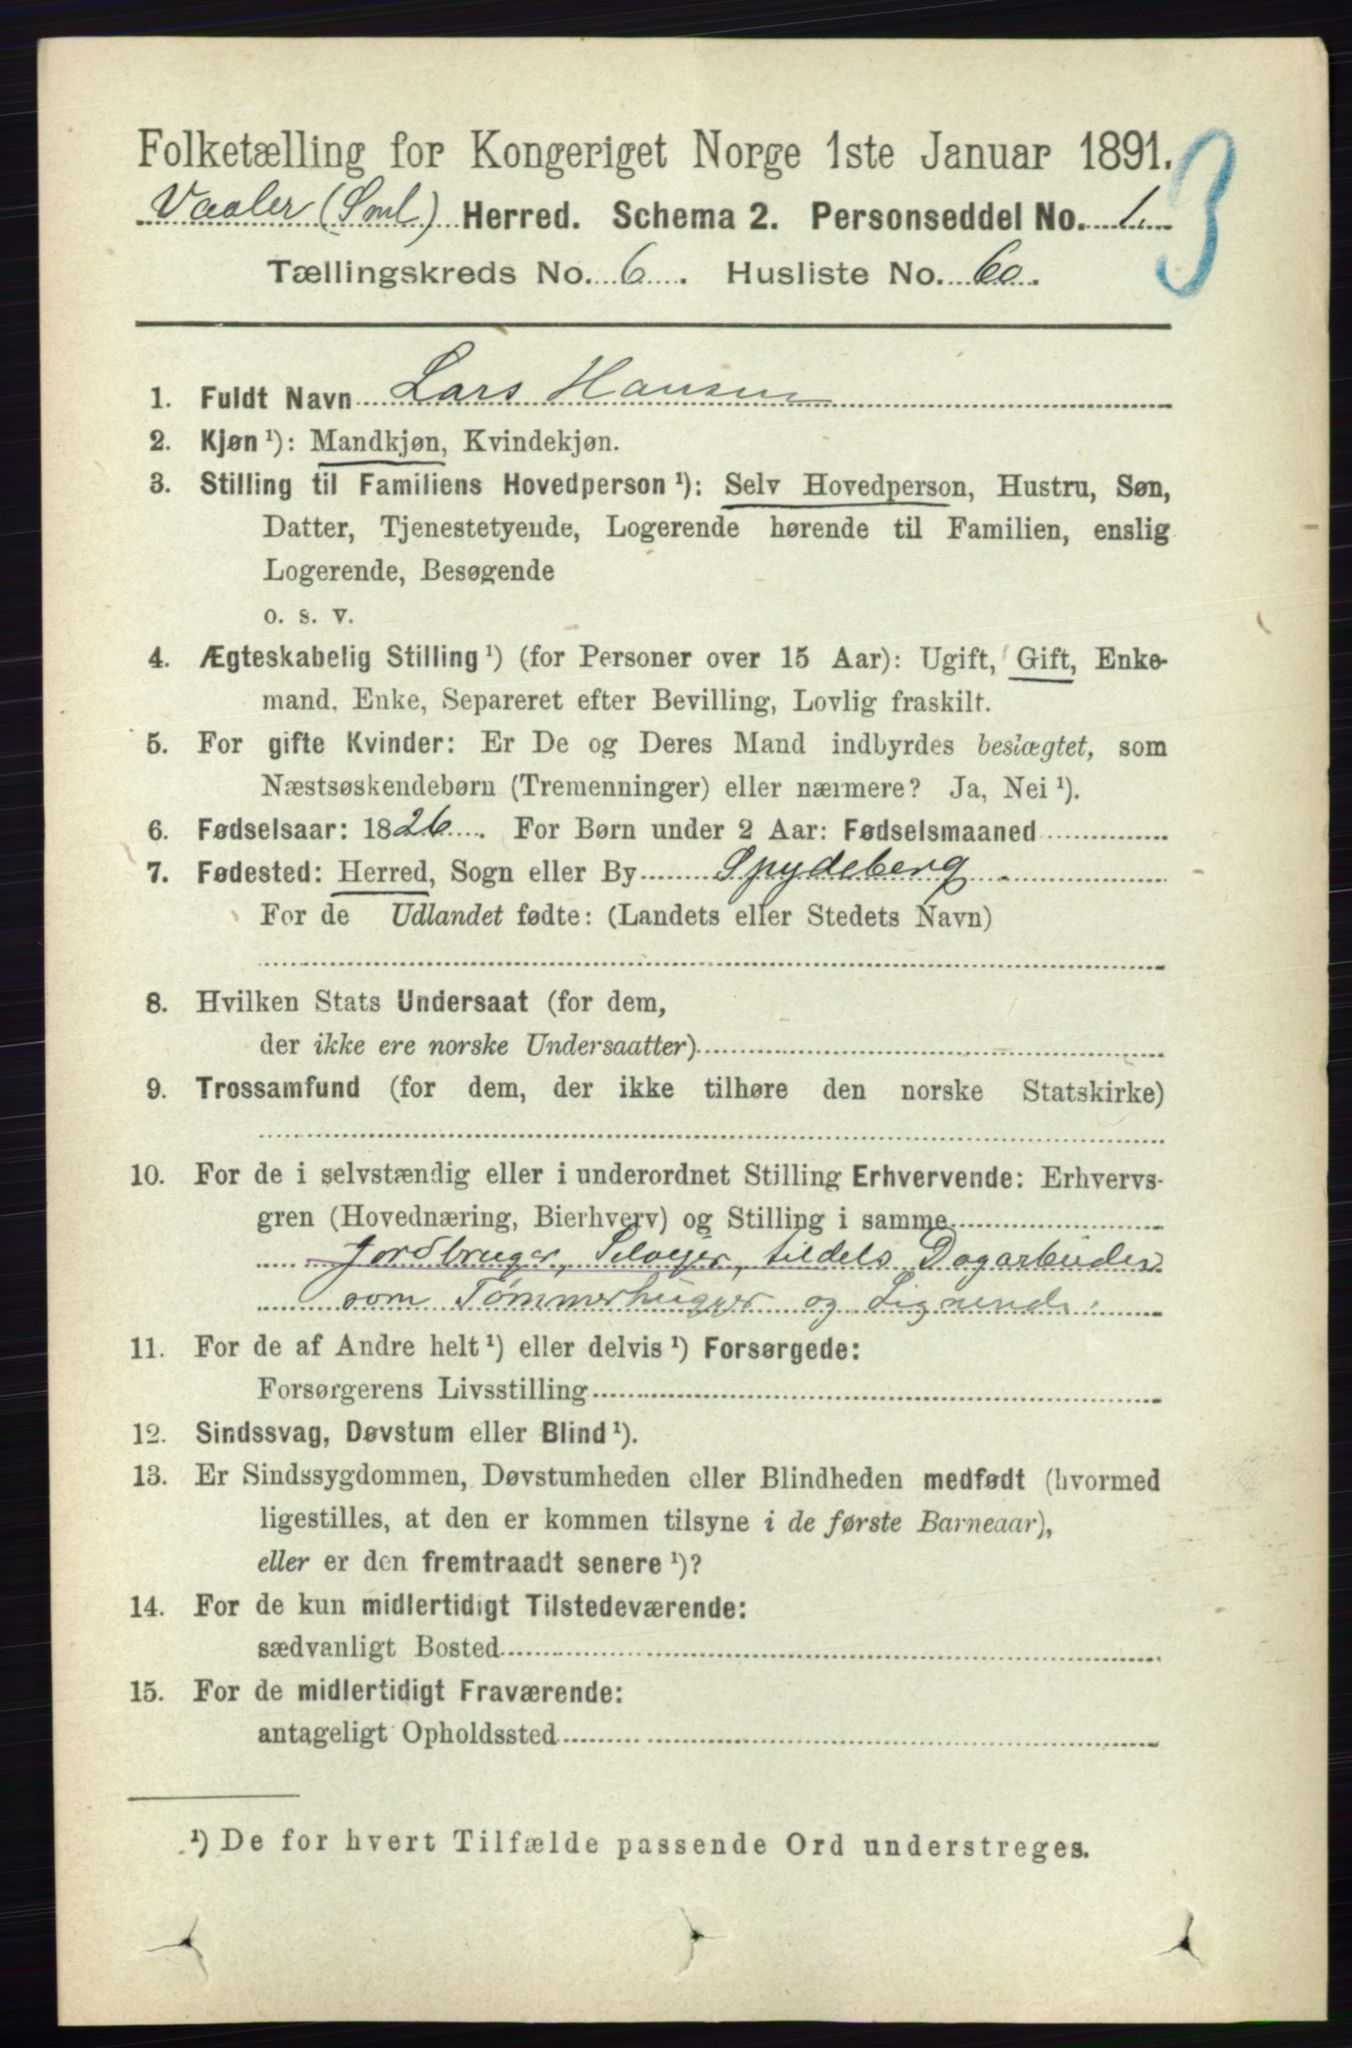 Folketælling for Kongeriget Norge 1ste Januar 1891.
3
Vaaler (Sml) Herred. Schema 2. Personseddel No. 1.
Tællingskreds No. 6. Husliste No. 60.
1. Fuldt Navn Lars Hansen
2. Kjøn ¹): Mandkjøn, Kvindekjøn.
3. Stilling til Familiens Hovedperson ¹): Selv Hovedperson, Hustru, Søn,
Datter, Tjenestetyende, Logerende hørende til Familien, enslig
Logerende, Besøgende
o. s. v.
4. Ægteskabelig Stilling ¹) (for Personer over 15 Aar): Ugift, Gift, Enke-
mand, Enke, Separeret efter Bevilling, Lovlig fraskilt.
5. For gifte Kvinder: Er De og Deres Mand indbyrdes beslægtet, som
Næstsøskendebørn (Tremenninger) eller nærmere? Ja, Nei ¹).
6. Fødselsaar: 1826. For Børn under 2 Aar: Fødselsmaaned
7. Fødested: Herred, Sogn eller By Spydeberg.
For de Udlandet fødte: (Landets eller Stedets Navn)
8. Hvilken Stats Undersaat (for dem,
der ikke ere norske Undersaatter)
9. Trossamfund (for dem, der ikke tilhøre den norske Statskirke)
10. For de i selvstændig eller i underordnet Stilling Erhvervende: Erhvervs-
gren (Hovednæring, Bierhverv) og Stilling i samme
Jordbruger, Selvejer, tildels Dagarbeider
som Tømmerhugger og Lignende.
11. For de af Andre helt ¹) eller delvis ¹) Forsørgede:
Forsørgerens Livsstilling
12. Sindssvag, Døvstum eller Blind ¹).
13. Er Sindssygdommen, Døvstumheden eller Blindheden medfødt (hvormed
ligestilles, at den er kommen tilsyne i de første Barneaar),
eller er den fremtraadt senere ¹)?
14. For de kun midlertidigt Tilstedeværende:
sædvanligt Bosted
15. For de midlertidigt Fraværende:
antageligt Opholdssted
¹) De for hvert Tilfælde passende Ord understreges.